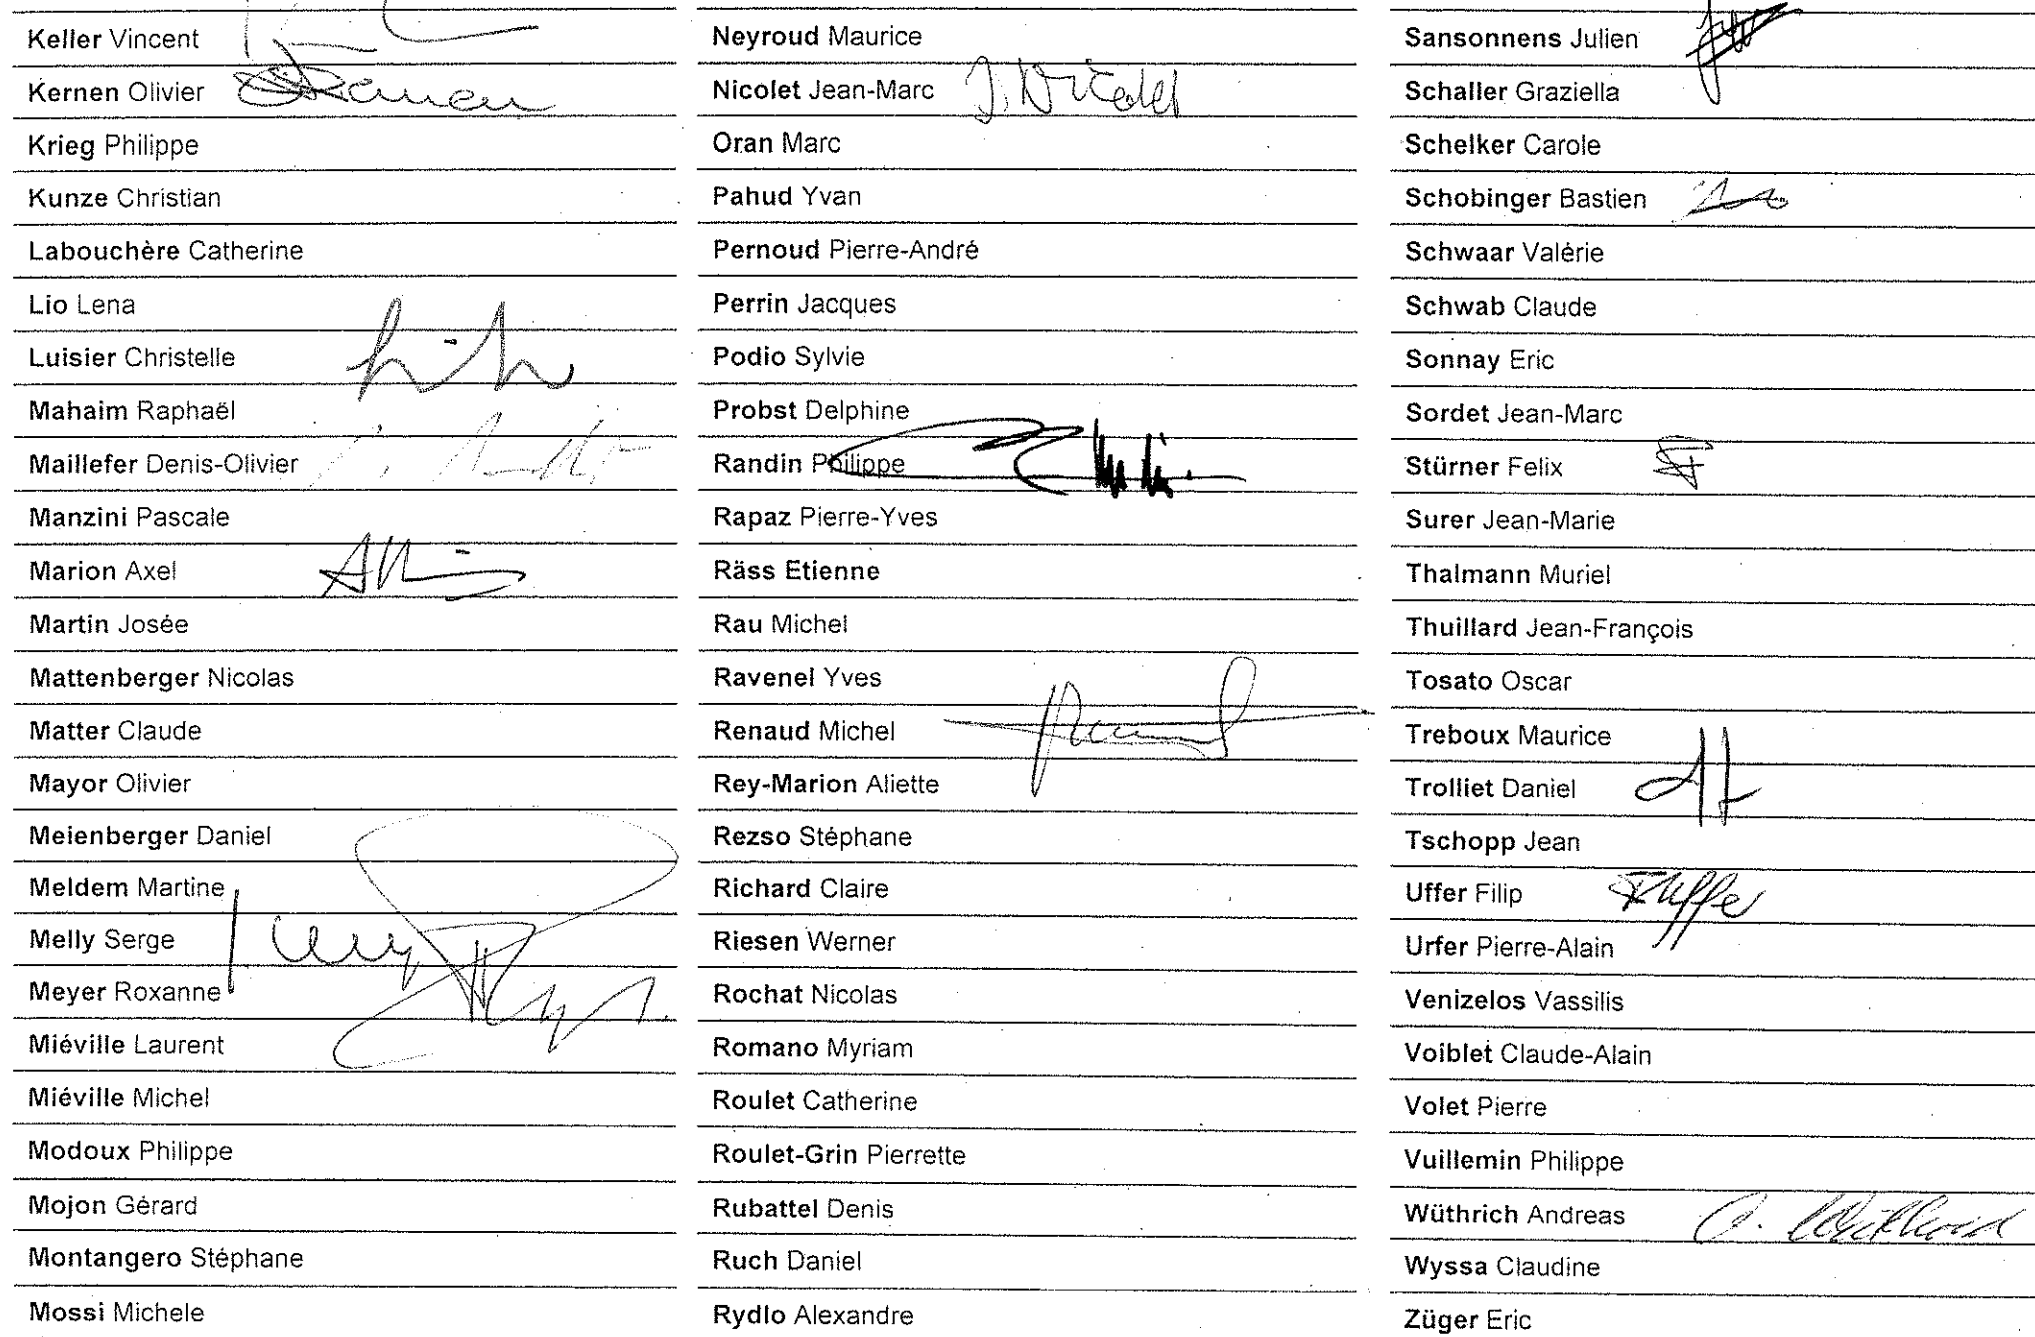 Keller Vincent
Kernen Olivier
Krieg Philippe
Kunze Christian
Labouchère Catherine
Lio Lena
Luisier Christelle
Mahaim Raphaël
Maillefer Denis-Olivier
Manzini Pascale
Marion Axel
Martin Josée
Mattenberger Nicolas
Matter Claude
Mayor Olivier
Meienberger Daniel
Meldem Martine
Melly Serge
Meyer Roxanne
Miéville Laurent
Miéville Michel
Modoux Philippe
Mojon Gérard
Montangero Stéphane
Mossi Michele
Neyroud Maurice
Nicolet Jean-Marc J. Nicolet
Oran Marc
Pahud Yvan
Pernoud Pierre-André
Perrin Jacques
Podio Sylvie
Probst Delphine
Randin Philippe
Rapaz Pierre-Yves
Räss Etienne
Rau Michel
Ravenel Yves
Renaud Michel
Rey-Marion Aliette
Rezso Stéphane
Richard Claire
Riesen Werner
Rochat Nicolas
Romano Myriam
Roulet Catherine
Roulet-Grin Pierrette
Rubattel Denis
Ruch Daniel
Rydlo Alexandre
Sansonnens Julien
Schaller Graziella
Schelker Carole
Schobinger Bastien
Schwaar Valérie
Schwab Claude
Sonnay Eric
Sordet Jean-Marc
Stürner Felix
Surer Jean-Marie
Thalmann Muriel
Thuillard Jean-François
Tosato Oscar
Treboux Maurice
Trolliet Daniel
Tschopp Jean
Uffer Filip
Urfer Pierre-Alain
Venizelos Vassilis
Voiblet Claude-Alain
Volet Pierre
Vuillemin Philippe
Wüthrich Andreas
Wyssa Claudine
Züger Eric